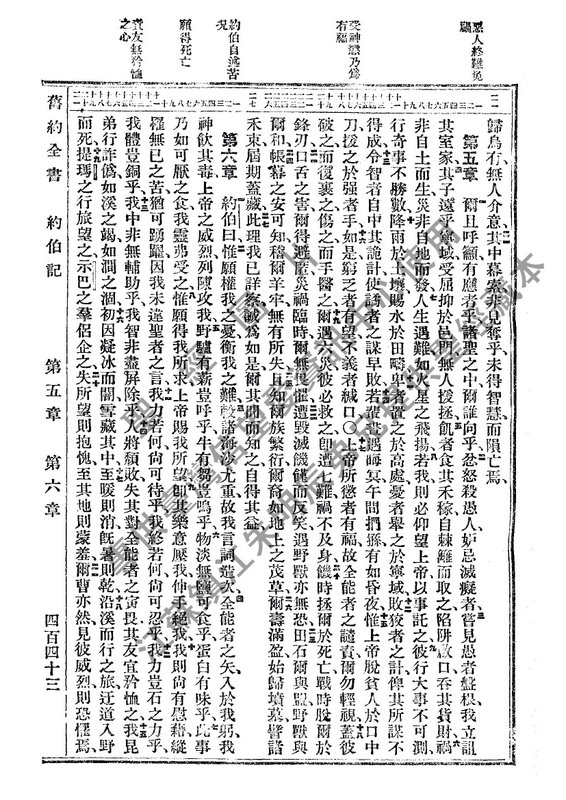 惡人終難免
禍
受神懲乃為
有福
約伯自述苦
況
願得死亡
責友無矜恤
之心
歸烏有、無人介意、其中幕索、非見奪乎、未得智慧而隕亡焉、
第五章 爾且呼籲、有應者乎、諸聖之中、爾誰向乎、忿怒殺愚人、妒忌滅癡者、嘗見愚者盤根、我立詛
其室家、其子遠乎寧域、受屈抑於邑門、無人援拯、飢者食其禾稼、自棘籬而取之、陷阱啟口、吞其貨財、禍
非自土而生、災非自地而發、人生遇難、如火星之飛揚、若我則必仰望上帝、以事託之、彼行大事不可測、
行奇事不勝數、降雨於土壤、賜水於田疇、卑者置之於高處、憂者舉之於寧域、敗狡者之計、俾其所謀不
得成、令智者自中其詭計、使譎者之謀早敗、若輩晝遇晦冥、午間捫索、有如昏夜、惟上帝脫貧人於口中
刀、援之於强者手、如是窮乏者有望、不義者緘口、○上帝所懲者有福、故全能者之譴責、爾勿輕視、蓋彼
破之而復裹之、傷之而手醫之、爾遇六災、彼必救之、卽遭七難、禍不及身、饑時拯爾於死亡、戰時脫爾於
鋒刃、口舌之害、爾得避匿、災禍臨時、爾無畏懼、遭毀滅饑饉而反笑、遇野獸亦無恐、田石爾與盟、野獸與
爾和、帳幕之安可知、稽爾羊牢、無有所失、且知爾族繁衍、爾裔如地上之茂草、爾壽滿盈、始歸墳墓、譬諸
禾束、屆期蓋藏、此理我已詳察、誠為如是、爾其聞而知之、自得其益、
第六章 約伯曰、惟願權我之憂、衡我之難、較諸海沙尤重、故我言詞造次、全能者之矢入於我躬、我
神飲其毒、上帝之威烈列隊攻我、野驢有薪、豈呼乎、牛有芻、豈鳴乎、物淡無鹽、可食乎、蛋白有味乎、此事
乃如可厭之食、我靈弗受之、惟願得我所求、上帝賜我所望、卽其樂意厭我、伸手絕我、我則尚有慰藉、縱
罹無已之苦、猶可踴躍、因我未違聖者之言、我力若何、尚可待乎、我終若何、尚可忍乎、我力豈石之力乎、
我體豈銅乎、我中非無輔助乎、我智非盡屏除乎、人將頹敗、失其對全能者之寅畏、其友宜矜恤之、我昆
弟行詐、為如溪之竭、如澗之涸、初因凝冰而闇、雪藏其中、至暖則消、旣暑則乾、沿溪而行之旅、迂道入野
而死、提瑪之行旅望之、示巴之羣侶企之、失所望則抱愧、至其地則蒙羞、爾曹亦然、見彼威烈、則恐懼焉、
舊約全書 約伯記 第五章 第六章 四百四十三